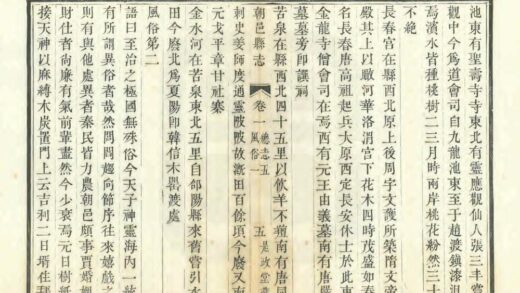 池東有聖壽寺寺東北有靈應觀仙人張三丰嘗
觀中今為道會司自九龍池東至于趙渡鎮漆沮
焉濱水皆種桃樹二三月時兩岸桃花紛然三十
不絶
長春宮在縣西北原上後周宇文護所築隋文帝
嚴其上以瞰河華洛渭宮下花木四時茂盛如春
名長春唐高祖起兵大原西定長安休士於此東
金龍寺僧會司在焉西有元王由義墓南有唐
墓墓旁即謨祠
苦泉在縣西北四十五里以飲羊不羶南有唐同
朝邑縣志 卷一 總志五 風俗一 五 是政堂
刺史姜師度通靈陂陂故漑田百餘頃今廢又南
元戈平章甘社寨
金水河在苦泉東北五里自郃陽縣來舊嘗引水
田今廢北為夏陽即韓信木罌渡處
風俗第二
語曰至治之極國無殊俗今天子神靈海內一
有所謂異俗者哉然問趨向節序往來嬉戲之
則有與他處異者秦民皆力農朝邑頗事賈婚姻
財仕者尚廉有氣前輩盡然今少衰焉元日樹
接天神以麻縛木炭置門上云吉利二日壻往拜